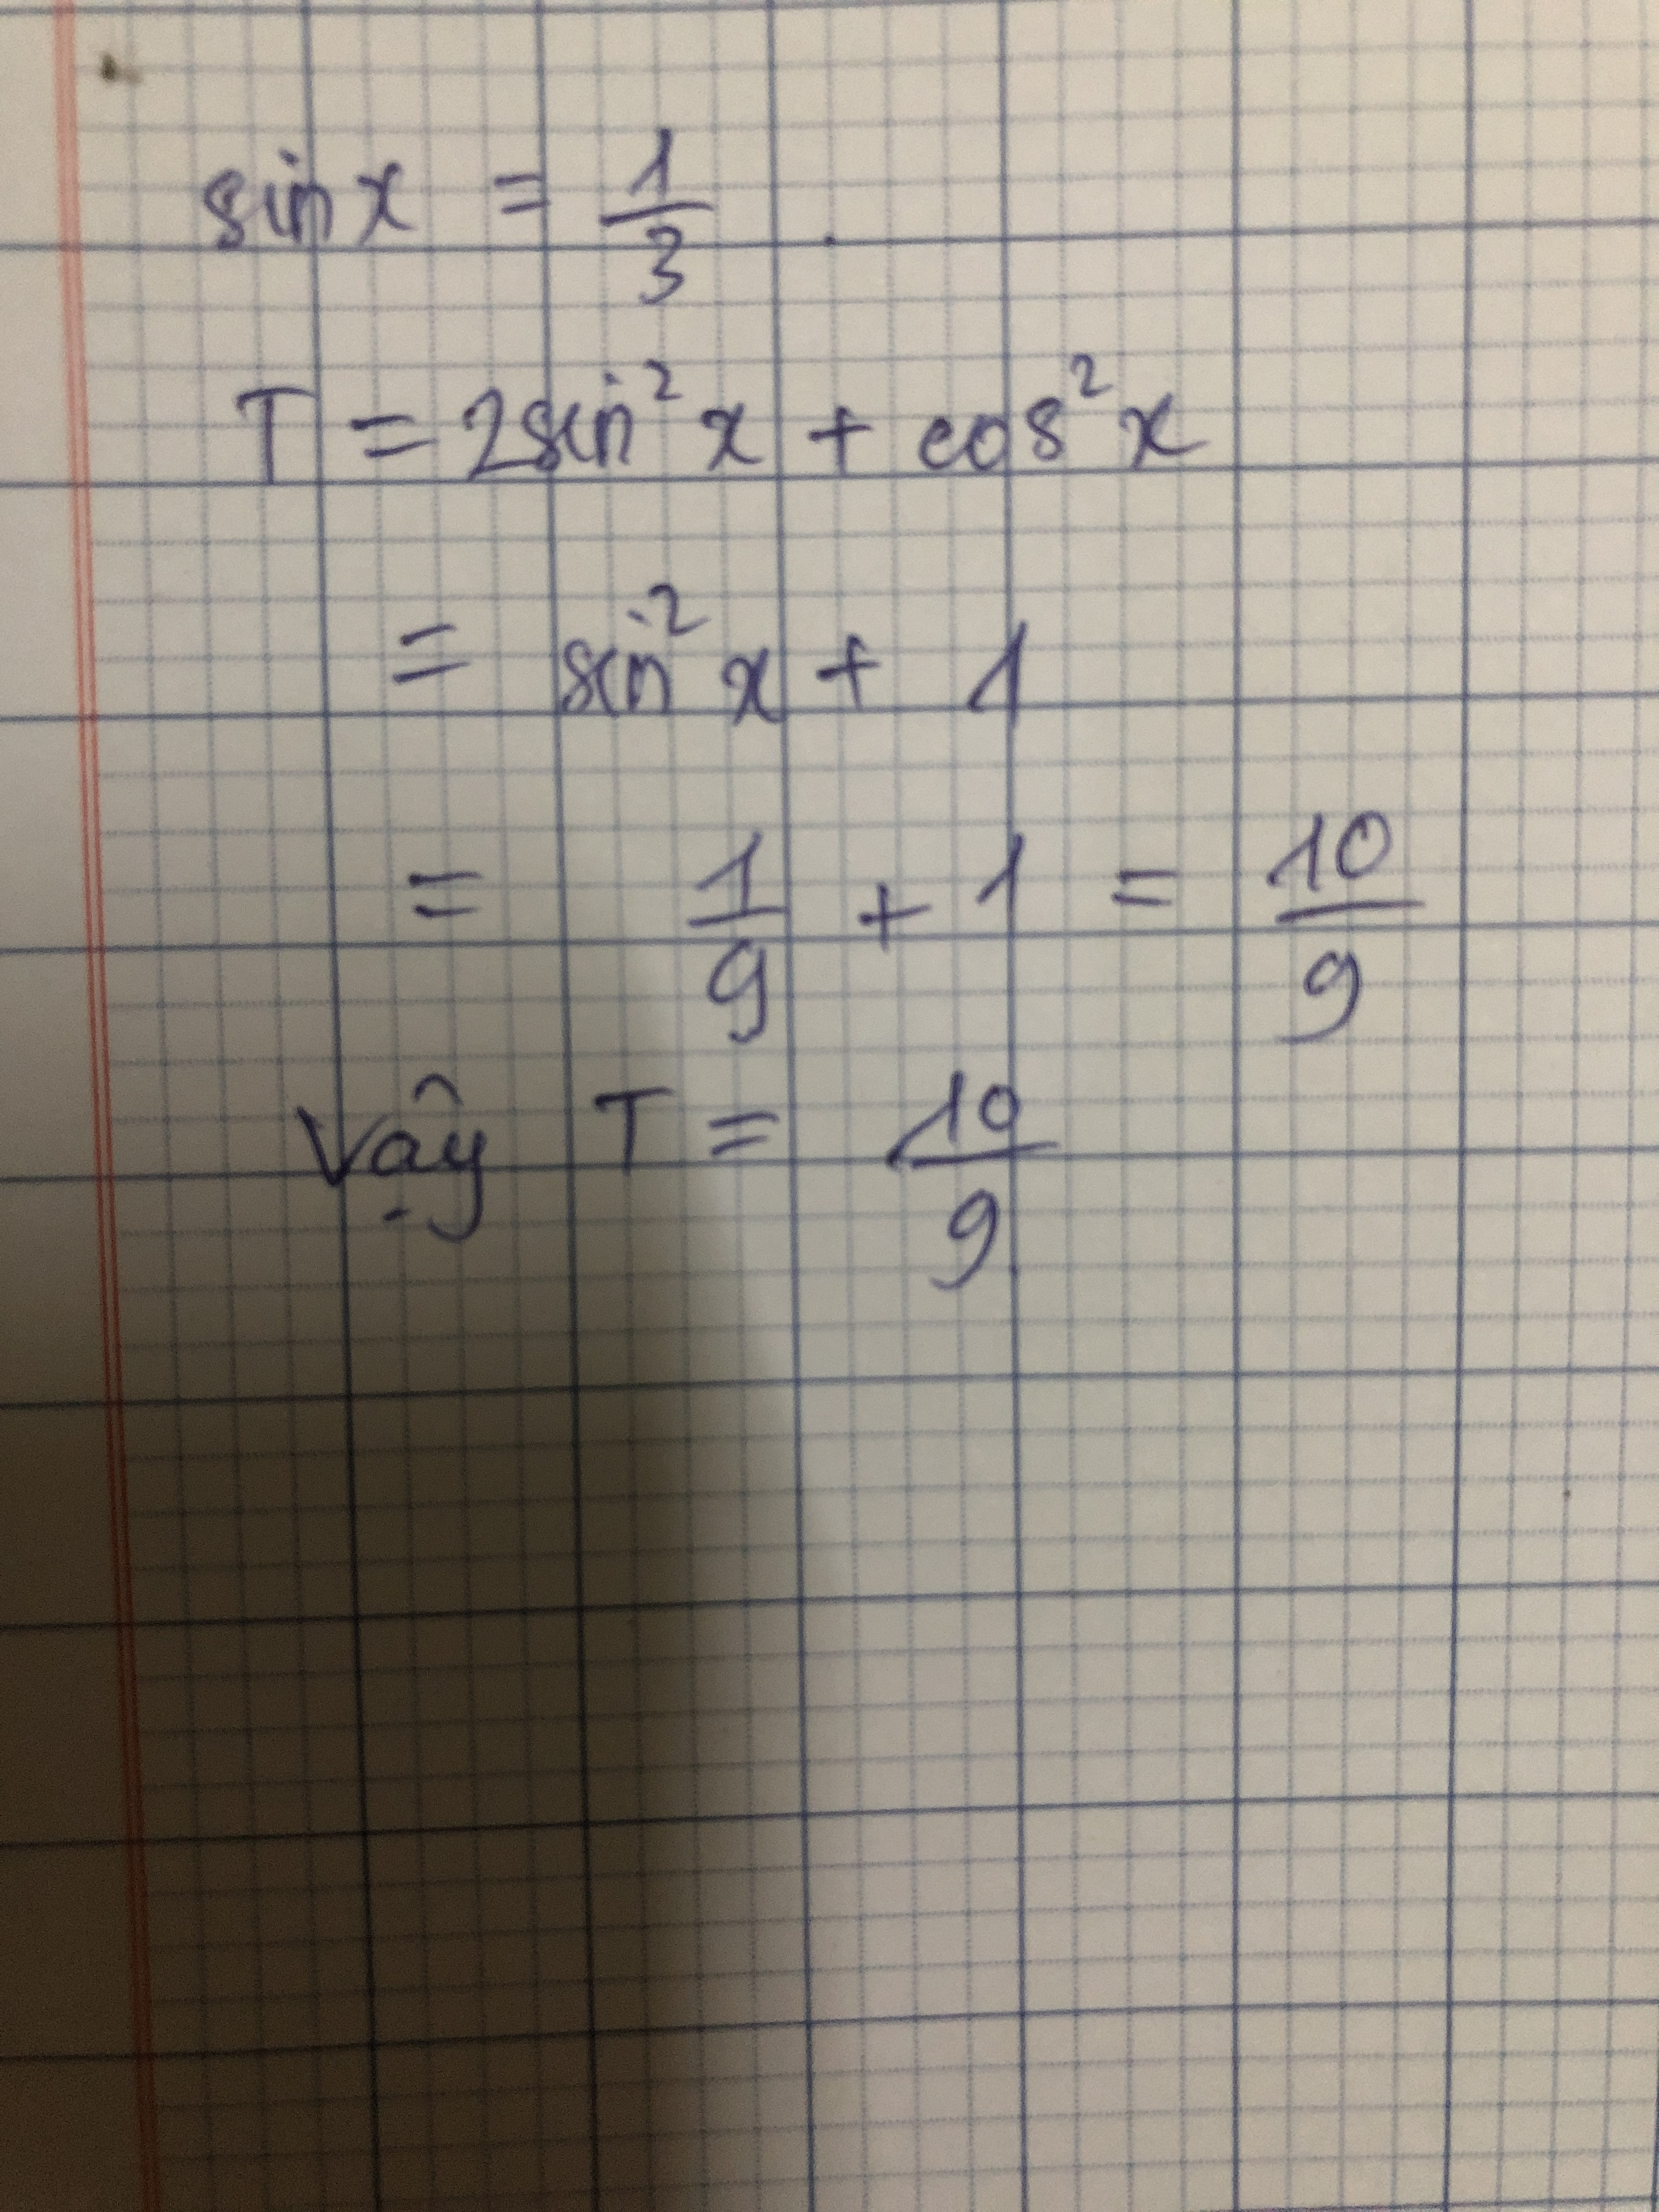 sin x = 1/3 .
T = 2sin² x + cos² x
= sin² x + 1
= 1/9 + 1 = 10/9
Vậy T = 10/9